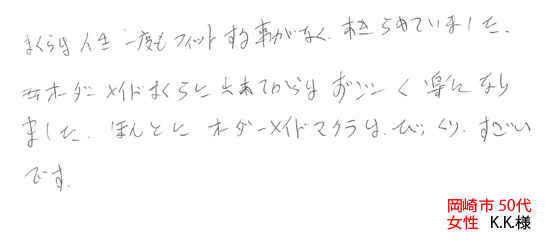 まくらは人生一度もフィットする事がなく、あきらめていました。
オーダーメイドまくらに出会てからはすごーく楽になり
ました。ほんとにオーダーメイドマクラは、びっくり、すごい
です。
岡崎市 50代
女性 K.K.様